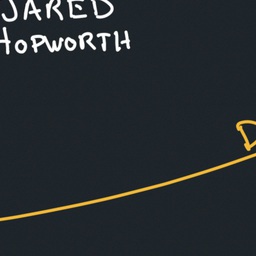 JARED
HOPWORTH
D